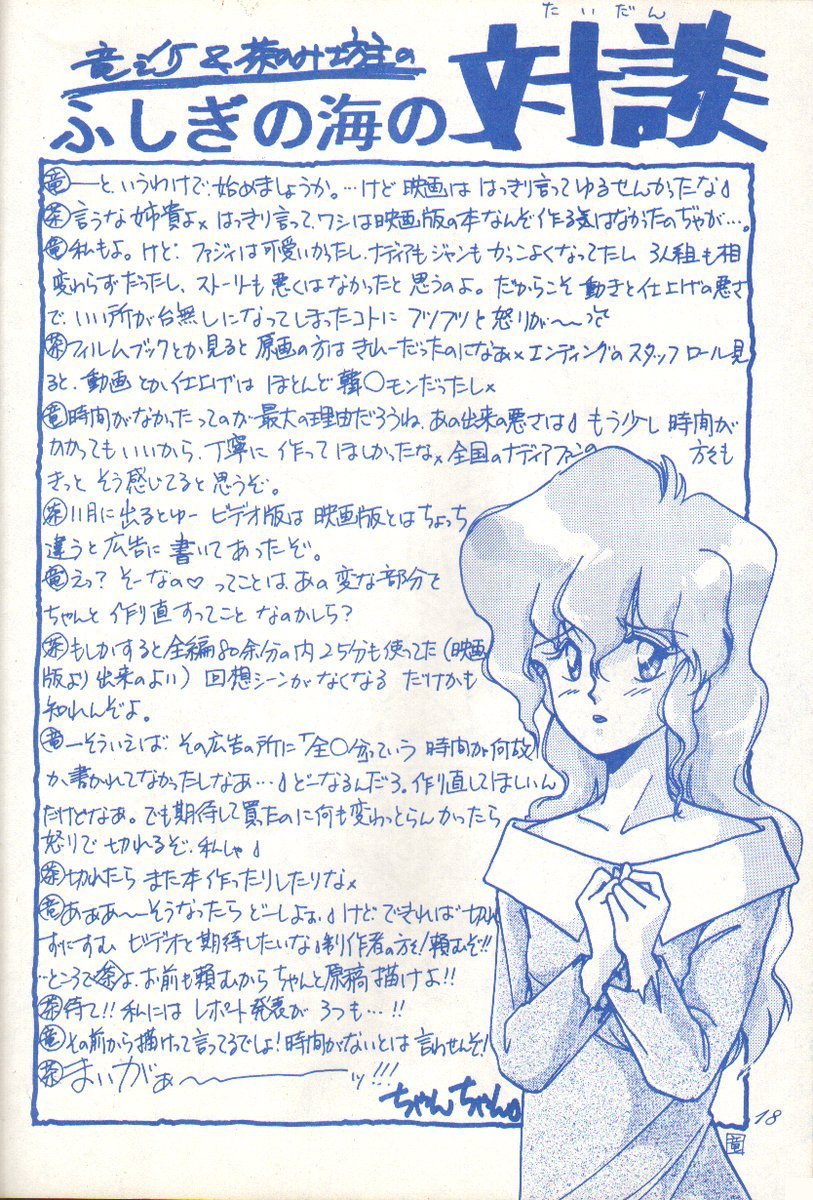 たいだん
竜シケ&茶のみ坊主の
対談
ふしぎの海の
竜―と、いうわけで、始めましょうか。…けど映画は はっきり言って ゆるせんかったな♪
茶言うな姉貴よ× はっきり言って、ワシは映画版の本なんぞ作る気はなかったのぢゃが…。
竜私もよ。けど、ファジィは可愛いかったし、ナディアもジャンもかっこよくなってたし 3人組も相
変わらずだったし、ストーリーも悪くはなかったと思うのよ。だからこそ動きと仕上げの悪さ
で、いい所が台無しになってしまったコトに ブツブツと怒りが〜〜
茶フィルムブックとか見ると原画の方はきれーだったのになぁ× エンディングのスタッフロール見
ると、動画とか仕上げは ほとんど韓○モンだったし×
竜時間がなかったってのが最大の理由だろうね、あの出来の悪さは♪ もう少し時間が
かかってもいいから、丁寧に作ってほしかったな× 全国のナディアファンの 方々も
きっと そう感じてると思うぞ。
茶11月に出るとゆー ビデオ版は 映画版とはちょっち
違うと広告に書いてあったぞ。
竜えっ? そーなの♡ ってことは、あの変な部分を
ちゃんと作り直すってこと なのかしら?
茶もしかすると全編80余分の内25分も使ってた(映画
版より出来のよい) 回想シーンがなくなる だけかも
知れんぞよ。
竜―そういえば、その広告の所に「全○分」っていう 時間が何故
か、書かれてなかったしなぁ…♪ どーなるんだろ。作り直してほしいん
だけどなぁ。でも期待して買ったのに何も変わっとらんかったら
怒りで切れるぞ、私しゃ♪
茶切れたら また本作ったりしたりな×
竜あぁぁ〜〜そうなったら どーしよぉ♪けど できれば 切れ
ずにすむ ビデオを期待したいな♪制作者の方々!頼むぞ!!
…ところで茶よ、お前も頼むからちゃんと原稿描けよ!!
茶待て!!私には レポート発表が 3つも…!!
竜その前から描けって言ってるでしょ!時間がないとは 言わせんぞ!
茶まいがぁ〜〜〜ッ!!!
ちゃんちゃん♪
18
竜